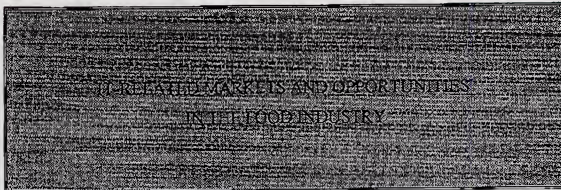 IT-RELATED MARKETS AND OPPORTUNITIES
IN THE FOOD INDUSTRY